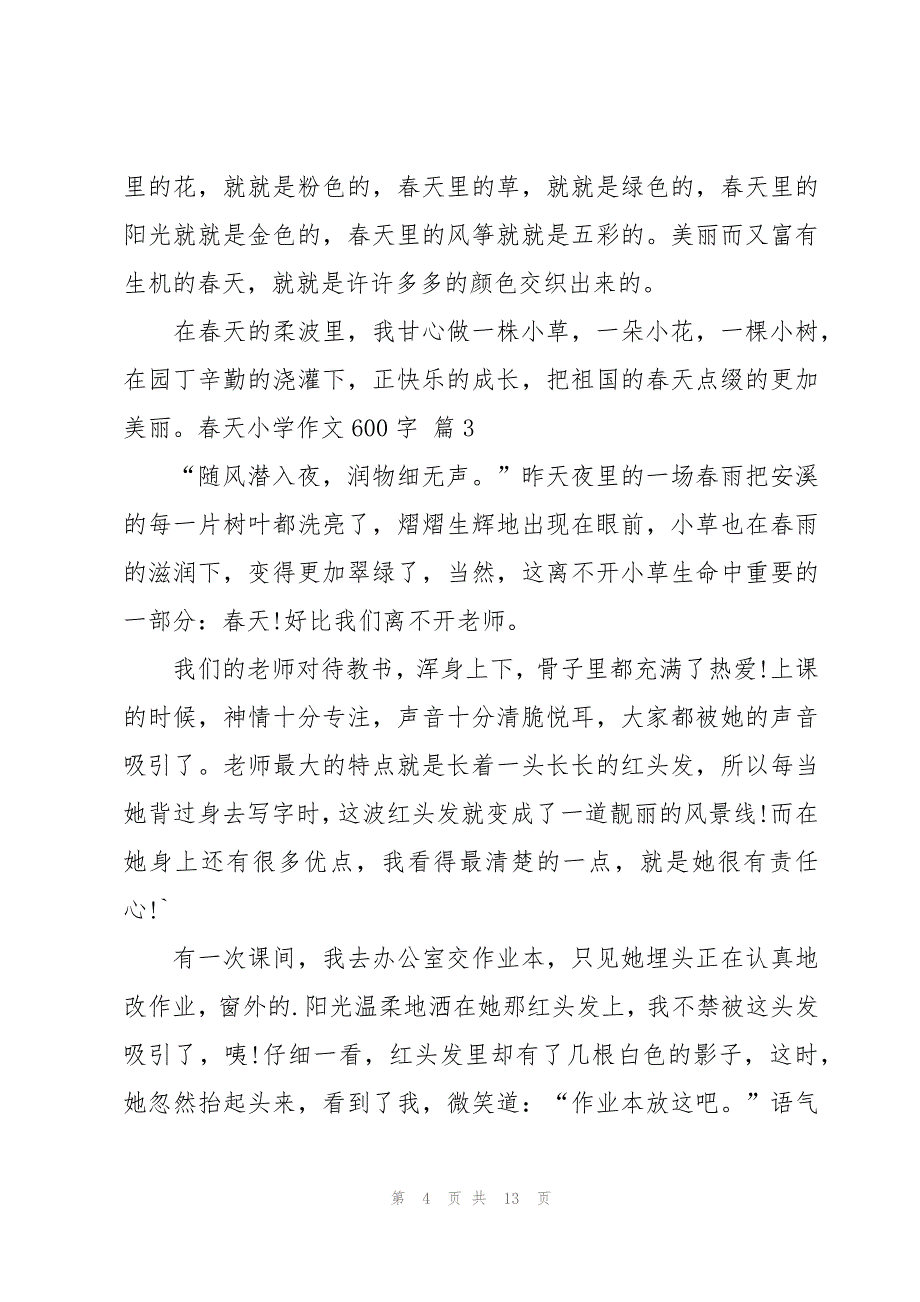 里的花，就就是粉色的，春天里的草，就就是绿色的，春天里的
阳光就就是金色的，春天里的风筝就就是五彩的。美丽而又富有
生机的春天，就就是许许多多的颜色交织出来的。
在春天的柔波里，我甘心做一株小草，一朵小花，一棵小树，
在园丁辛勤的浇灌下，正快乐的成长，把祖国的春天点缀的更加
美丽。春天小学作文600字 篇3
“随风潜入夜，润物细无声。”昨天夜里的一场春雨把安溪
的每一片树叶都洗亮了，熠熠生辉地出现在眼前，小草也在春雨
的滋润下，变得更加翠绿了，当然，这离不开小草生命中重要的
一部分：春天!好比我们离不开老师。
我们的老师对待教书，浑身上下，骨子里都充满了热爱!上课
的时候，神情十分专注，声音十分清脆悦耳，大家都被她的声音
吸引了。老师最大的特点就是长着一头长长的红头发，所以每当
她背过身去写字时，这波红头发就变成了一道靓丽的风景线!而在
她身上还有很多优点，我看得最清楚的一点，就是她很有责任
心!`
有一次课间，我去办公室交作业本，只见她埋头正在认真地
改作业，窗外的.阳光温柔地洒在她那红头发上，我不禁被这头发
吸引了，咦!仔细一看，红头发里却有了几根白色的影子，这时，
她忽然抬起头来，看到了我，微笑道：“作业本放这吧。”语气
第 4 页 共 13 页